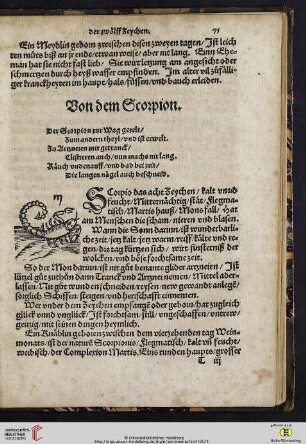 der zwölff Zeychen. 75
Ein Meydlin geborn zwischen disen zweyen tagen / Ist leich
ten můts biß an jr ende / etwan weise / aber nit lang. Einn Ehe-
man hat sie nicht fast lieb / Sie würt letzung am angesicht oder
schmertzen durch heyß wasser empfinden. Im alter vil zůfälli-
ger kranckheyten im haupt / hals / füssen / und bauch erleiden.
Von dem Scorpion.
Der Scorpion zur Wag gezelt /
Zum andern theyl / und ist erwelt.
In Artzneien nur getranck /
Clistieren auch / nun machs nit lang.
Räuch und enauff / und bad bei zeit /
Die langen nägel auch beschneid.
Scorpio das acht Zeychen / kalt unnd
feucht / Mitternächtig / stät / Flegma-
tisch / Martis hauß / Mons fall / Hat
in Menschen die scham / nieren und blasen.
Wann die Sonn darinn / ist wunderbarli-
che zeit / jetz kalt / jetz warm / reiff / kälte und re-
gen / die tag kürtzen sich / wirt finsterniß der
wolcken / und böse forchtsame zeit.
So der Mon darinn / ist nit gůt benante glider artzneien / Ist
lützel gůt zůthůn dann Tranck und Artzney nemen / Mittel ader-
lassen / Nit gůt wunden schneiden / reysen / new gewandt anlegē /
sorglich Schiffen / steigen / und herrschafft einnemen.
Wer under dem Zeychen empfangē oder geborn / hat zugleich
glück unnd unglück / Ist forchtsam / still / ungeschaffen / untrew /
geitzig / mit seinen dingen heymlich.
Ein Knäblin geboren zwischen dem vierzehenden tag Wein-
monats / ist der nature Scorpionis / Flegmatisch / kalt uñ feucht /
weibisch / der Complexion Martis. Eins runden haupts / grosser
T iij